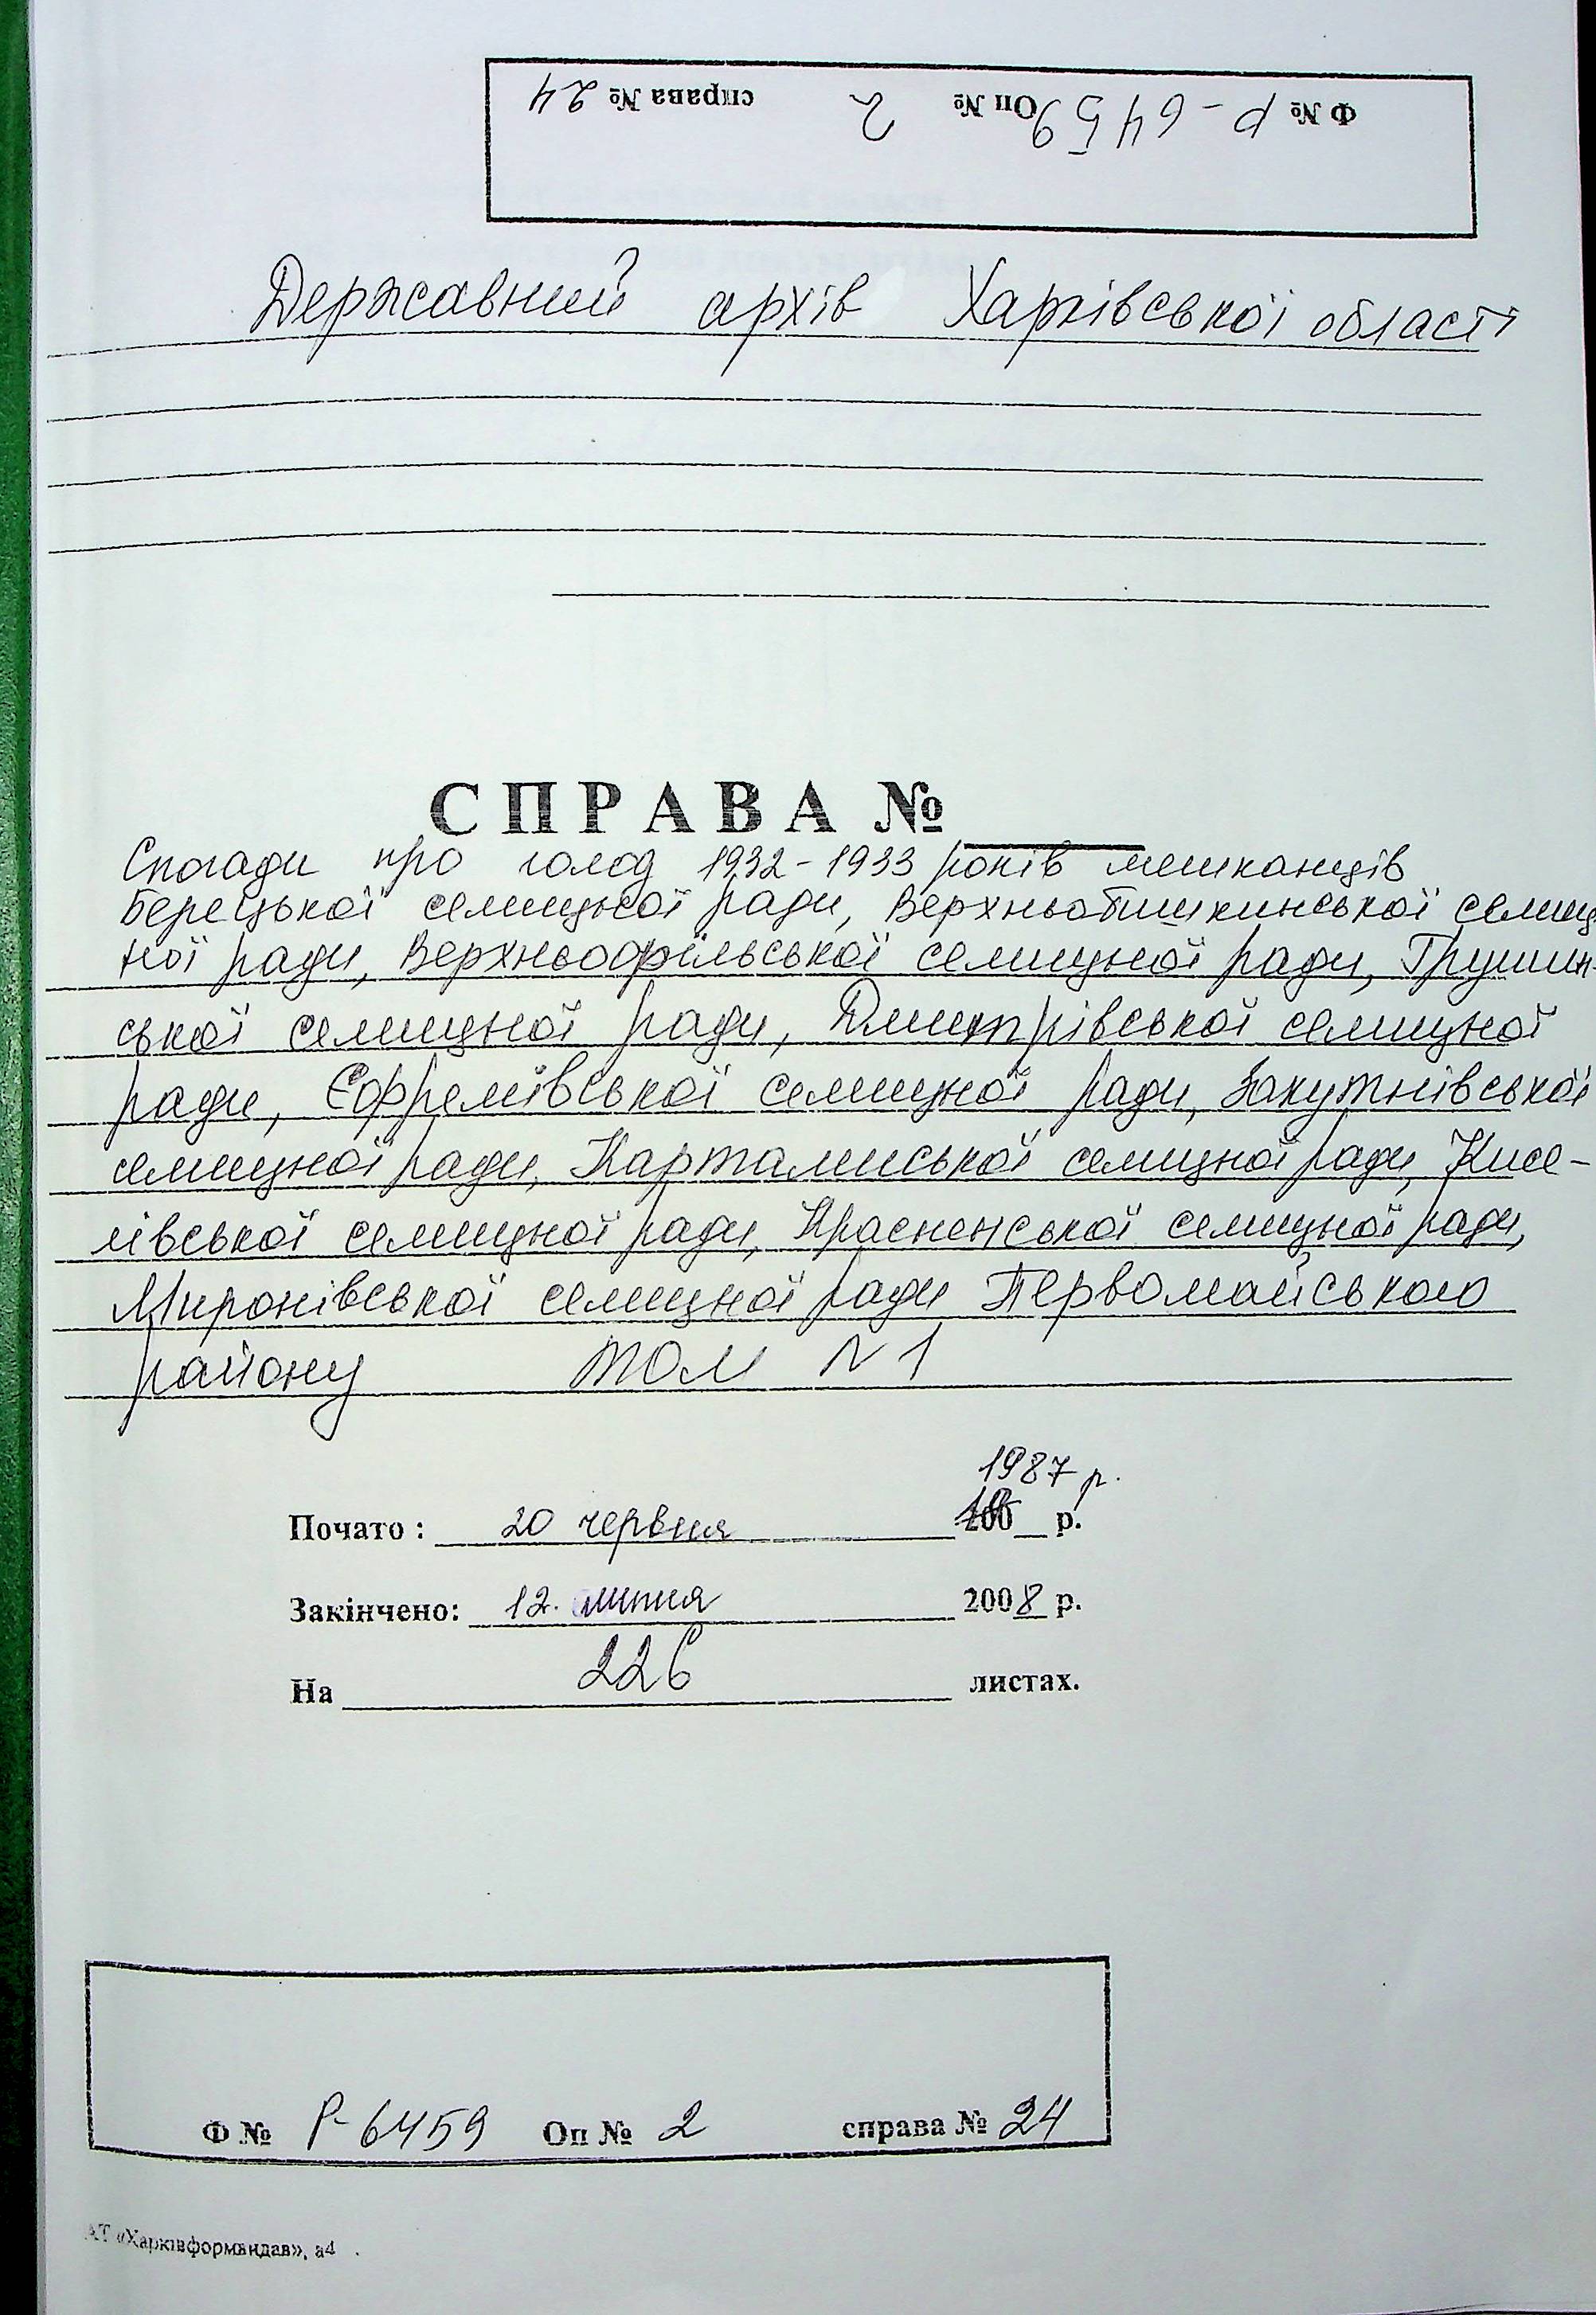 Ф № Р-6459 Оп № 2 справа № 24
Державний архів Харківської області
СПРАВА №
Спогади про голод 1932-1933 років мешканців
Берецької селищної ради, Верхньобишкинської селищ
ної ради, Верхньоорільської селищної ради, Грушин-
ської селищної ради, Дмитрівської селищної
ради, Єфремівської селищної ради, Закутнівської
селищної ради, Картамиської селищної ради, Кисе-
лівської селищної ради, Красненської селищної ради,
Миронівської селищної ради Первомайського
району том N 1
1987 р.
Почато : 20 червня 200 р.
Закінчено: 12. липня 2008 р.
На 226 листах.
Ф № Р-6459 Оп № 2 справа № 24
АТ «Харківформвидав», а4